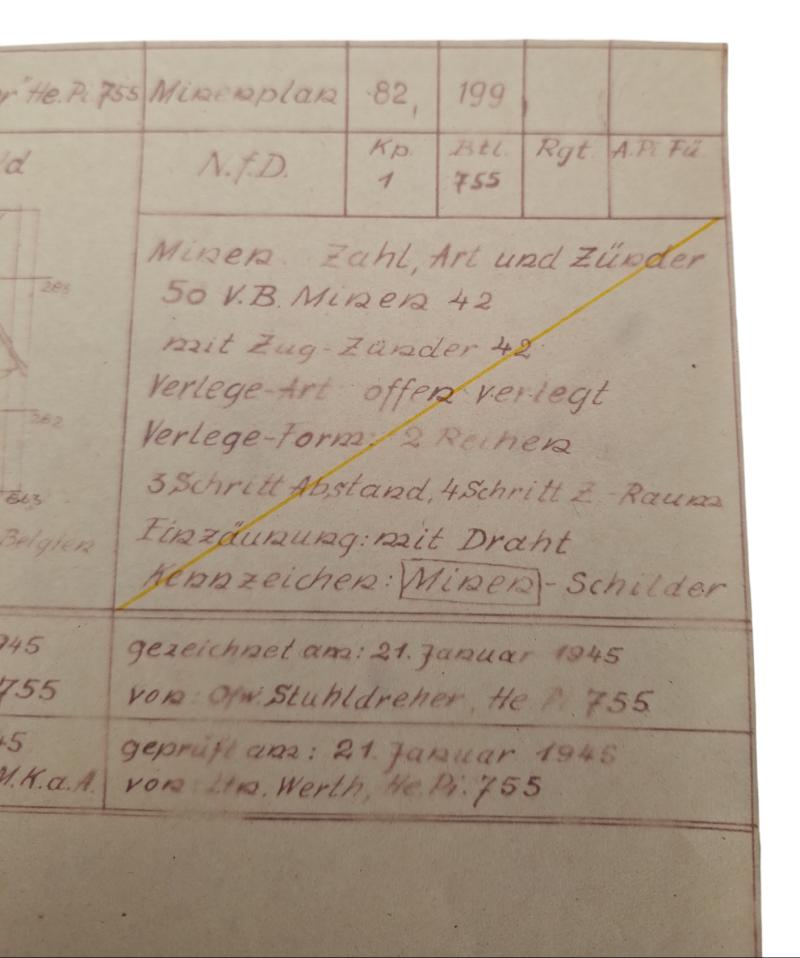 r" He. Pi. 755 Minenplan 82, 199
ld N.f.D. Kp. Btl. Rgt. A.Pi.Fü.
1 755
Minen Zahl, Art und Zünder
50 V.B. Minen 42
mit Zug-Zünder 42
Verlege-Art offen verlegt
Verlege-Form: 2 Reihen
3 Schritt Abstand, 4 Schritt Z.-Raum
Einzäunung: mit Draht
Kennzeichen: Minen-Schilder
282
Belgien
945 gezeichnet am: 21. Januar 1945
755 von Ofw. Stuhldreher, He. Pi. 755
45 geprüft am: 21. Januar 1945
M.K.a.A. von Ltn. Werth, He. Pi. 755